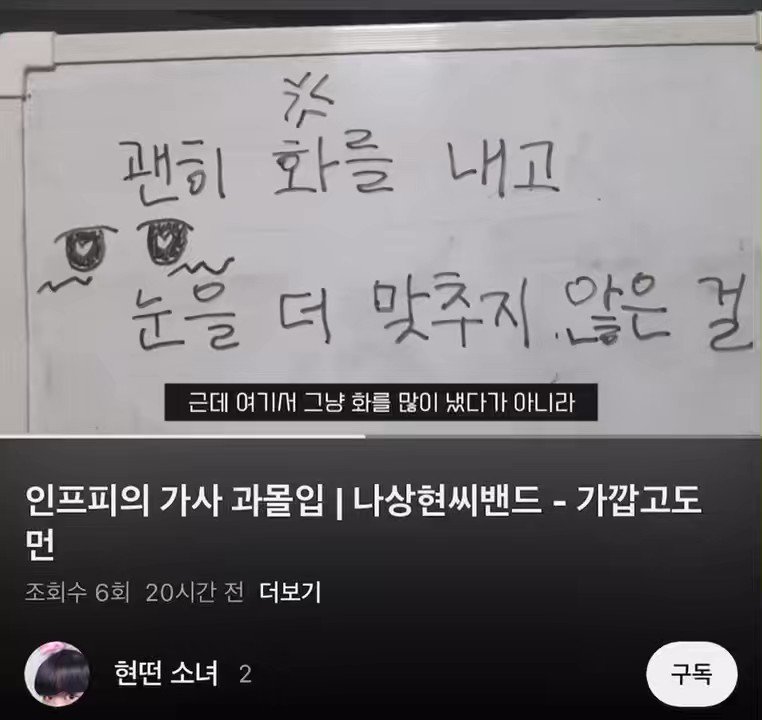 괜히 화를 내고
눈을 더 맞추지 않은 걸
근데 여기서 그냥 화를 많이 냈다가 아니라
인프피의 가사 과몰입 | 나상현씨밴드 - 가깝고도
먼
조회수 6회 20시간 전 더보기
현떤 소녀 2
구독